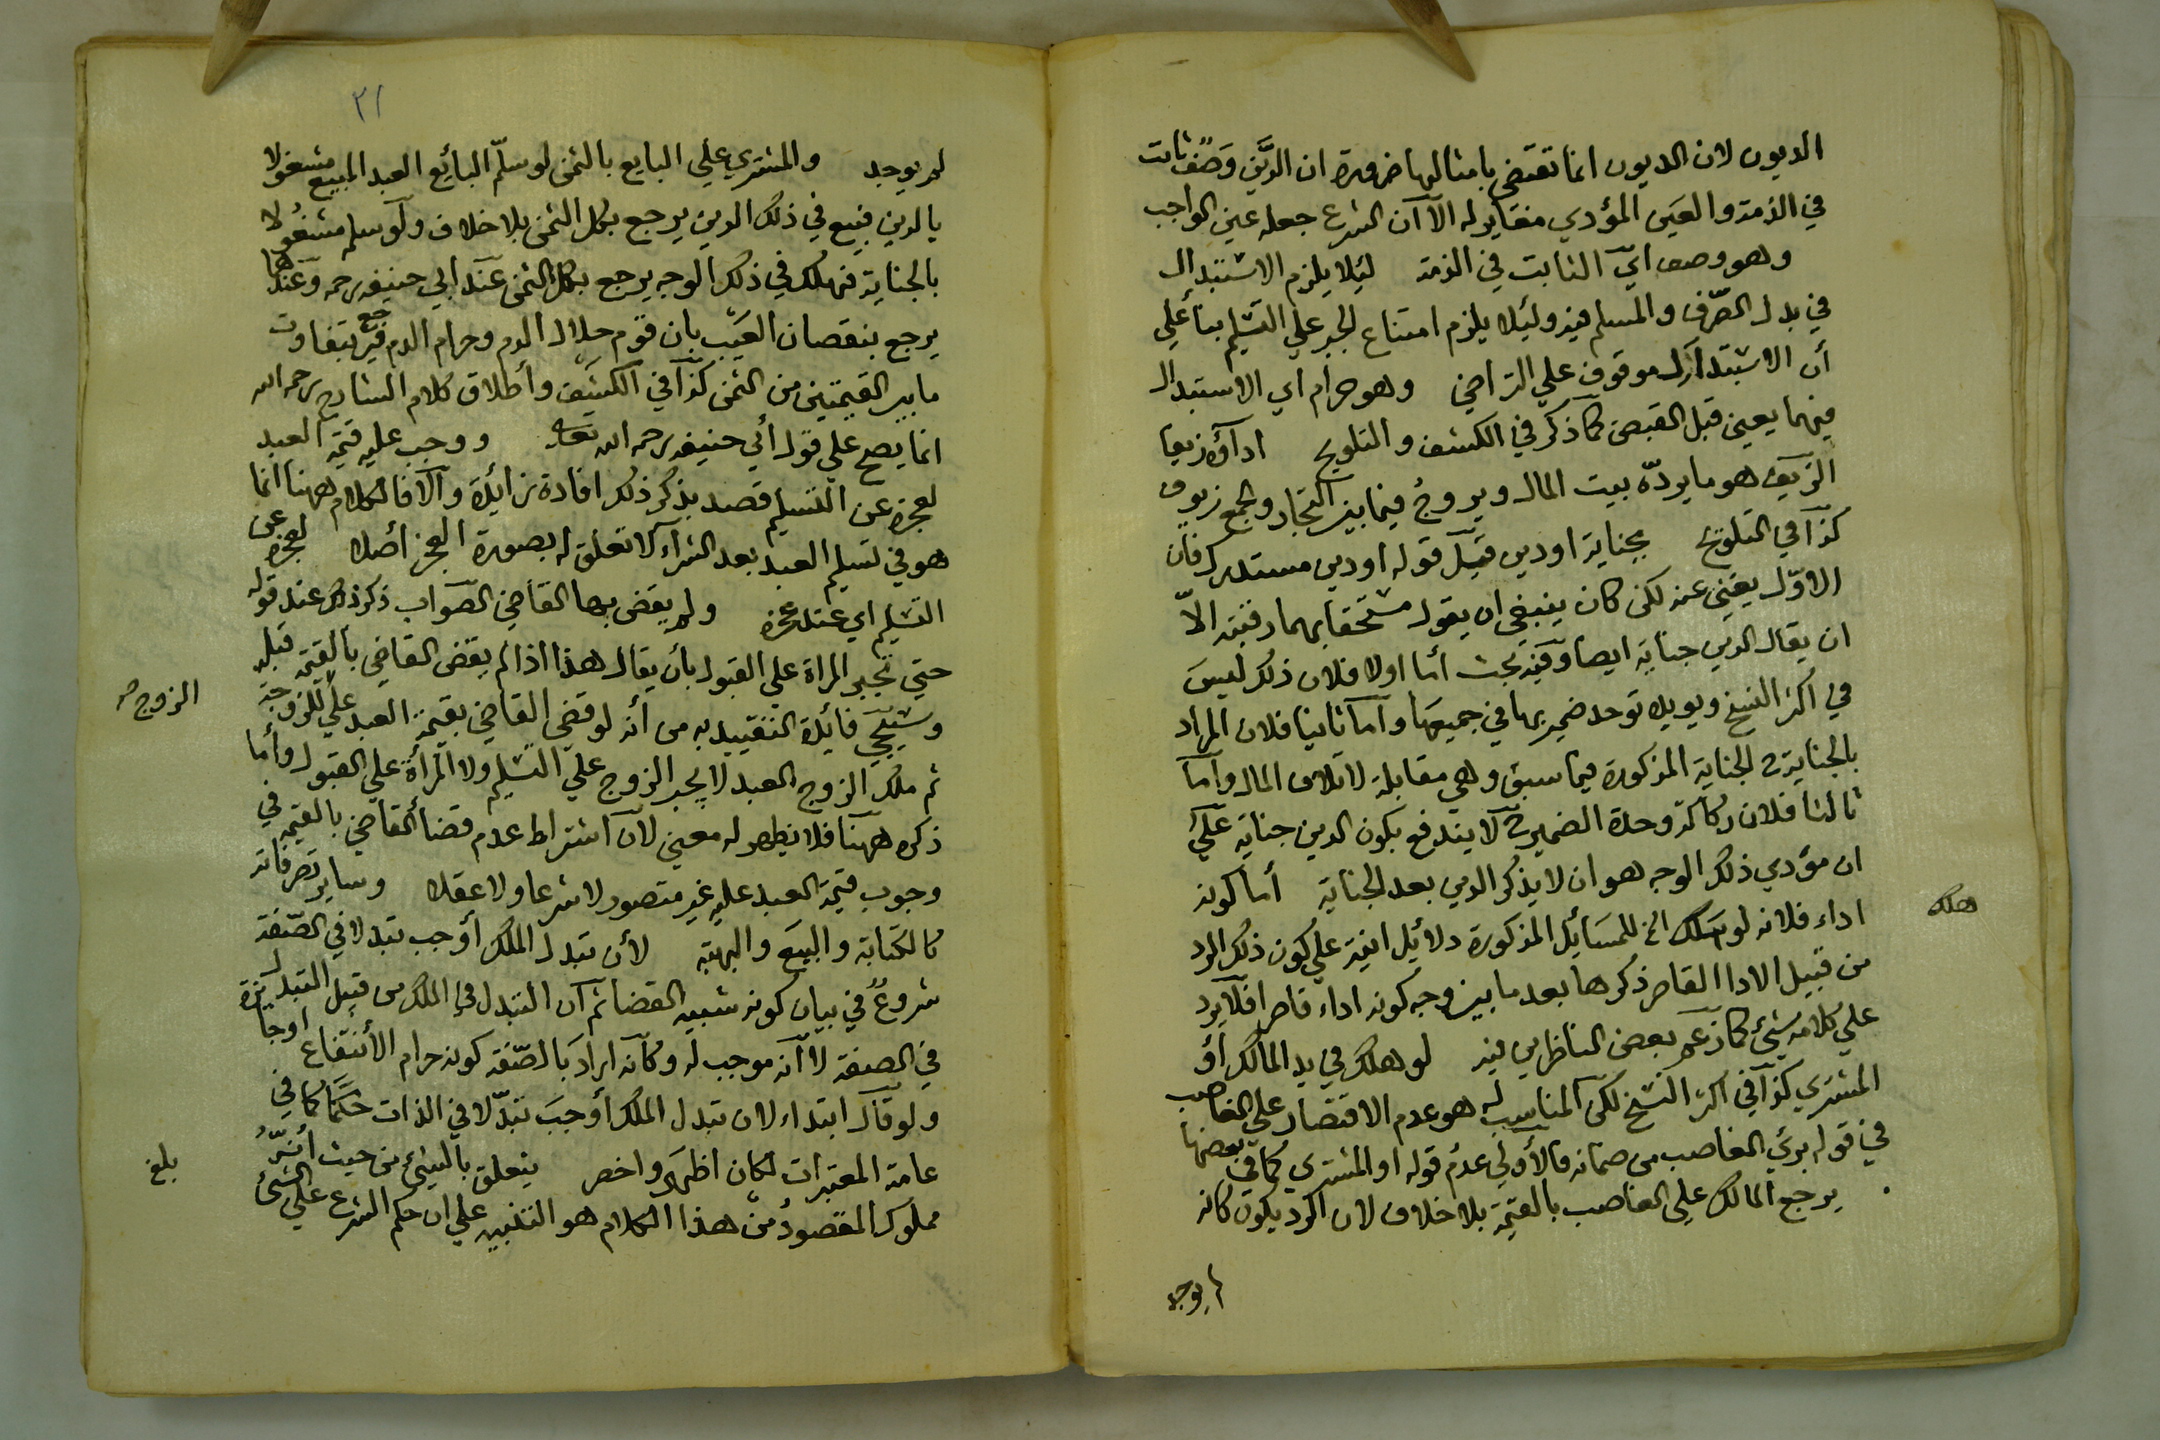 الديون لان الديون انما تقتضي بامثالها ضرورة ان الدَّين وَصفٌ ثابت
في الذمة والعَين المؤدي مغاير له الآ آن الشرع جعله عين الواجب
وهو وصف ايّ الثابت في الذمة لئلا يلزم الاستبدال
في بدل الصّرف والمسلم فيه ولئلا يلزم امتناع الجبر علي التسليم بنا علي
أن الاستبدال موقوف علي التراضي وهو حرام اي الاستبدال
فيهما يعيني قبل القبض كما ذكر في الكشف والتلويح اداؤه زيفا
الزيف هو ما يردّه بيت المال ويروجُ فيما بين التجار والجمع زيوف
كذا في التلويح بجناية او دين قيل قوله او دين مستدرك فان
الاوّل يغني عنه لكن كان ينبغي ان يقول مستحقا بهما رقبته الّا
ان يقال الدين جناية ايضا وفيه بحث أما اولا فلان ذلك ليسَ
في اكثر النسخ ويويده توحد ضمير بها في جميعها وآما ثانيا فلان المراد
بالجناية الجناية المذكورة فيما سبق وهي مقابلة لاتلاف المال وأما
ثالثا فلان ركاكة وحدة الضمير لا يندفع بكون الدين جناية علي
ان مؤدي ذلك الوجه هو ان لا يذكر الدين بعد الجناية أما كونه
اداء فلانه لو هلك الخ للمسَايل المذكورة دلايل انية علي كون ذلك الرد
هلك
من قبيل الادا القاصر ذكرها بعد ما بين وجه كونه اداء قاصرا فلا يرد
علي كلامه شئ كما زعم بعض الناظرين فيه لو هلك في يد المالك أو
المشتري كذا في اكثر النسخ لكن المناسب له هو عدم الاقتصار علي الغاصب
في قوله برئ الغاصب من ضمانه فالأولي عدم قوله او المشتري كما في بعضها
يرجع المالك علي الغاصب بالقيمة بلا خلاف لان الرد يكون كانه
لم يوجد
٢١
لم يوجد والمشتري علي البايع بالثمن لو سلّم البائع العبد المبيع مشغولا
بالدين فبيع في ذلك الدين يرجع بكل الثمن بلا خلاف ولو سلم مشغولا
بالجناية فهلك في ذلك الوجه يرجع بكل الثمن عند ابي حنيفه رحمه وعندهما
يرجع بنقصان العَيب بان قوم حلال الدم وحرام الدم فيرجع بتفاوت
ما بين القيمتين من الثمن كذا في الكشف وأطلاق كلام الشارح رحمه الله
انما يصح علي قول أبي حنيفه رحمه الله تعالي ووجب عليه قيمة العبد
لعجزه عن التسليم قصد بذكر ذلك افادة زائدة والا فالكلام ههنا انما
هو في تسليم العبد بعد الشراء لا تعلق له بصورة العجز أصلا لعجزه عن
التسليم اي عند عجزه ولم يقض بها القاضي الصواب ذكر ذلك عند قوله
حتي تجبر المراة علي القبول بأن يقال هذا اذا لم يقض القاضي بالقيمة قبله
وسيجي فائدة التقييد به من أنه لو قضي القاضي بقيمة العبد علي للزوجة
الزوج صح
ثم ملك الزوج العبد لا يجبر الزوج علي التسليم ولا المرأة علي القبول وأما
ذكره ههنا فلا يظهر له معني لآن اشتراط عدم قضا القاضي بالقيمة في
وجوب قيمة العبد عليه غير متصور لا شرعا ولا عقلا وساير تصرفاته
كالكتابة والبيع والهبة لأن تبدل الملك أوجب تبدلا في الصّفة
شروعٌ في بيان كونه شبيه القضا ثم آن التبدل في الملك من قبيل التبدل
في الصفة لا آنه موجب له وكأنه اراد بالصّفة كونه حرام الأنتفاع او جائزه
ولو قال ابتداء لان تبدل الملك أوجبَ تبدّلا في الذات حكمًا كما في
عامة المعتبرات لكان اظهَر واخصر يتعلق بالشيء من حيث أنهُ
بلغ
مملوك المقصودُ من هذا الكلام هو التنبيه علي ان حكم الشرع علي الشئ